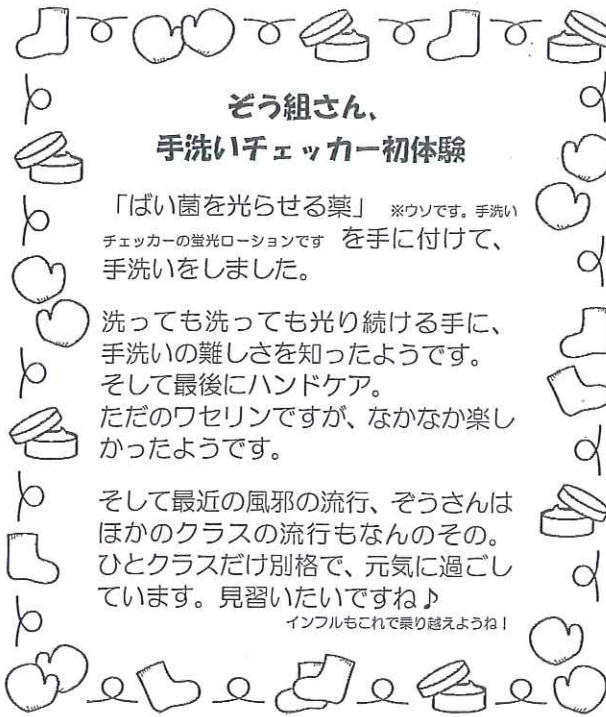 ぞう組さん、
手洗いチェッカー初体験
「ばい菌を光らせる薬」 ※ウソです。手洗い
チェッカーの蛍光ローションです を手に付けて、
手洗いをしました。
洗っても洗っても光り続ける手に、
手洗いの難しさを知ったようです。
そして最後にハンドケア。
ただのワセリンですが、なかなか楽し
かったようです。
そして最近の風邪の流行、ぞうさんは
ほかのクラスの流行もなんのその。
ひとクラスだけ別格で、元気に過ごし
ています。見習いたいですね♪
インフルもこれで乗り越えようね！